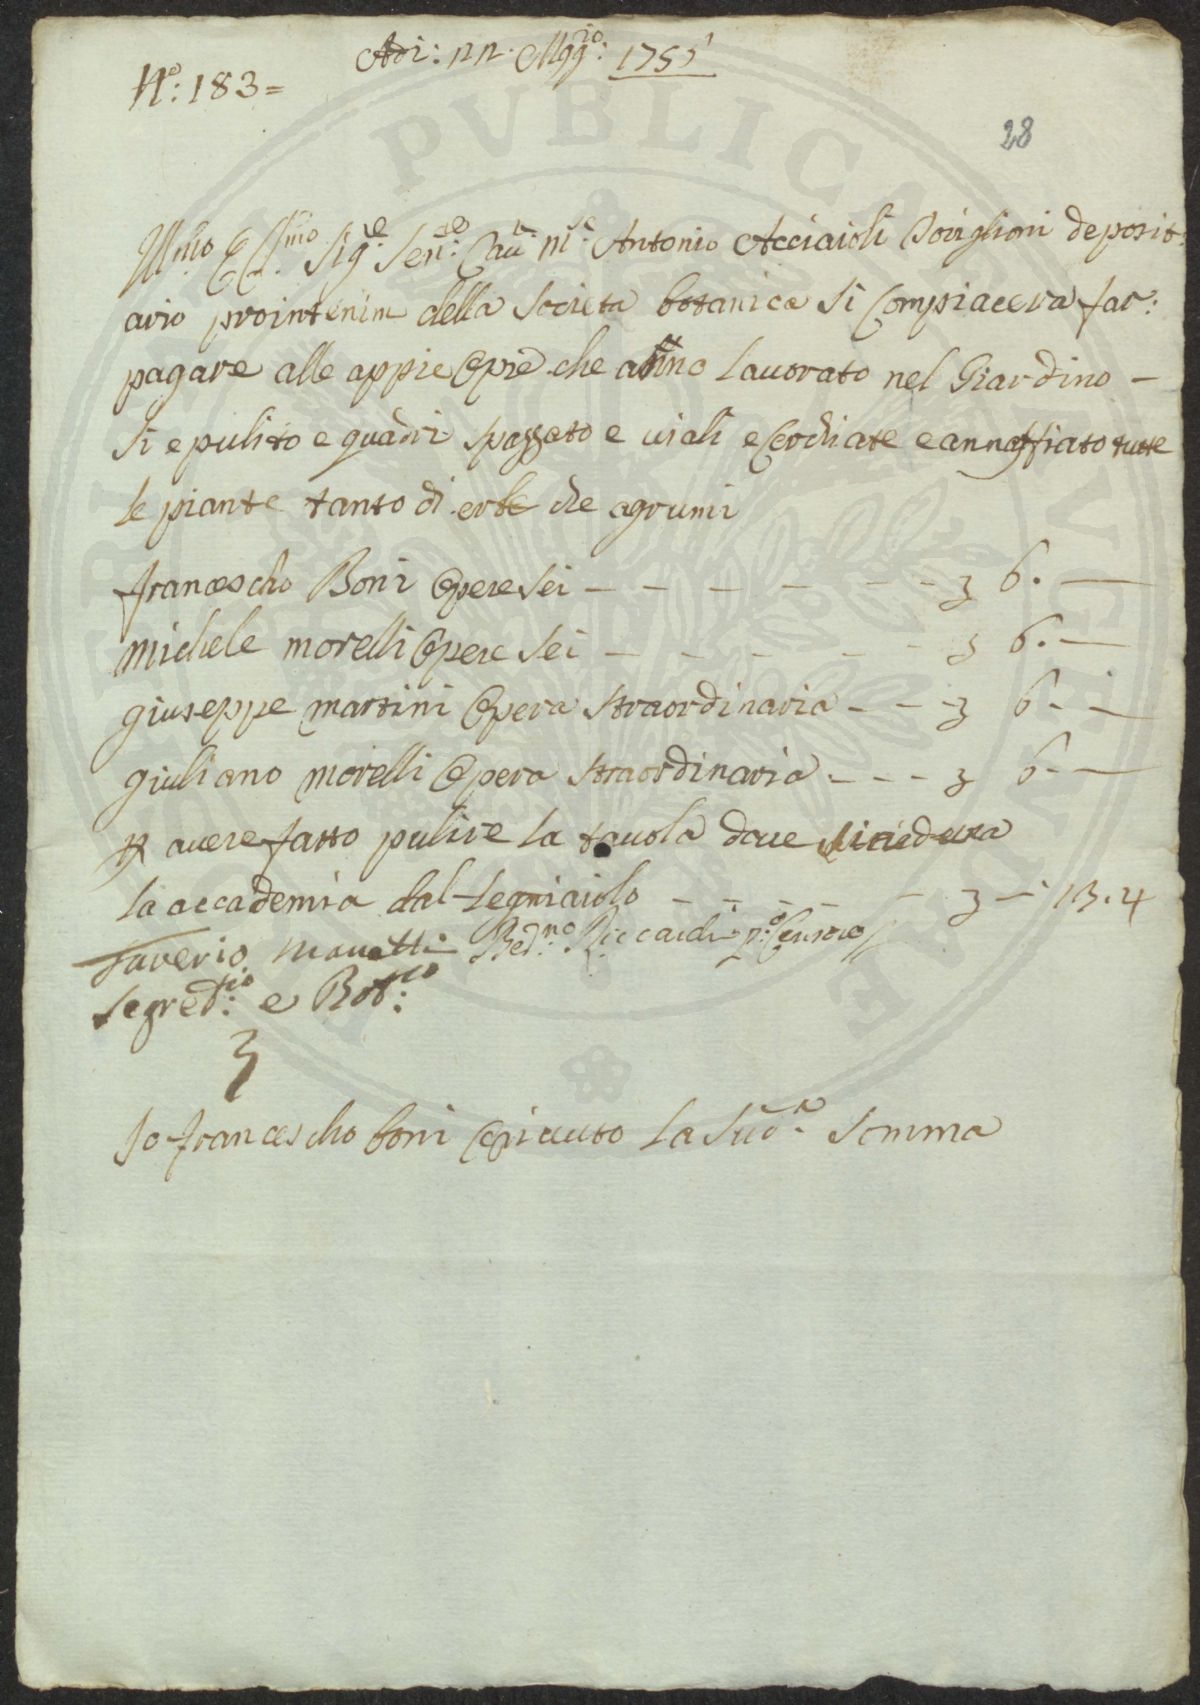 Adi: 22. Magg:io 1755
N.o: 183=
28
Ill:mo E C:mo Sig:re Sen:re Cau:re M:e Antonio Acciaioli Toriglioni deposit:
ario prointenim della Societa botanica Si Compiacera far:
pagare alle appie Opre che anno Lauorato nel Giardino -
Si e pulito e quadri Spazzato e uiali e Cerchiate e annaffiato tutte
le piante tanto di erbe che agrumi
francescho Boni Opere Sei - - - - - - - 3 6. —
michele morelli Opere Sei - - - - - - 3 6. —
giuseppe martini Opera Straordinaria - - - 3 6 - —
giuliano morelli Opera Straordinaria - - - 3 6 - —
p auere fatto pulire La tauola doue
la accademia dal Legniaiolo - - - - - 3 - 13.4
Saverio Manetti Bed:no Riccardi p:o Censore
Segret:rio e Bot:co
Io francescho boni O riceuuto La Sud:a Somma
PVBLICA